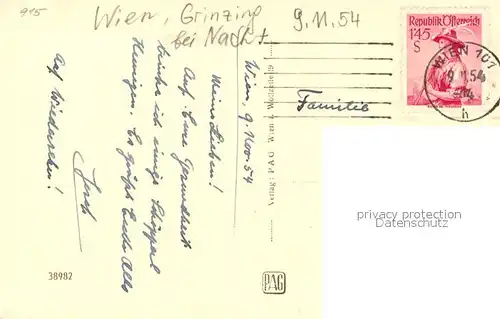 915
Wien, Grinzing
bei Nacht
9.11.54
Republik Österreich
145
S
WIEN 101
9.11.54
h
Familie
Wien, 9. Nov. 54
Meine Lieben!
Auf Eure Gesundheit
trinke ich einige Stopperl
Heurigen. Es grüßt Euch alle
Josef
Auf Wiedersehen!
Verlag: P A G Wien
38982
PAG
privacy protection
Datenschutz